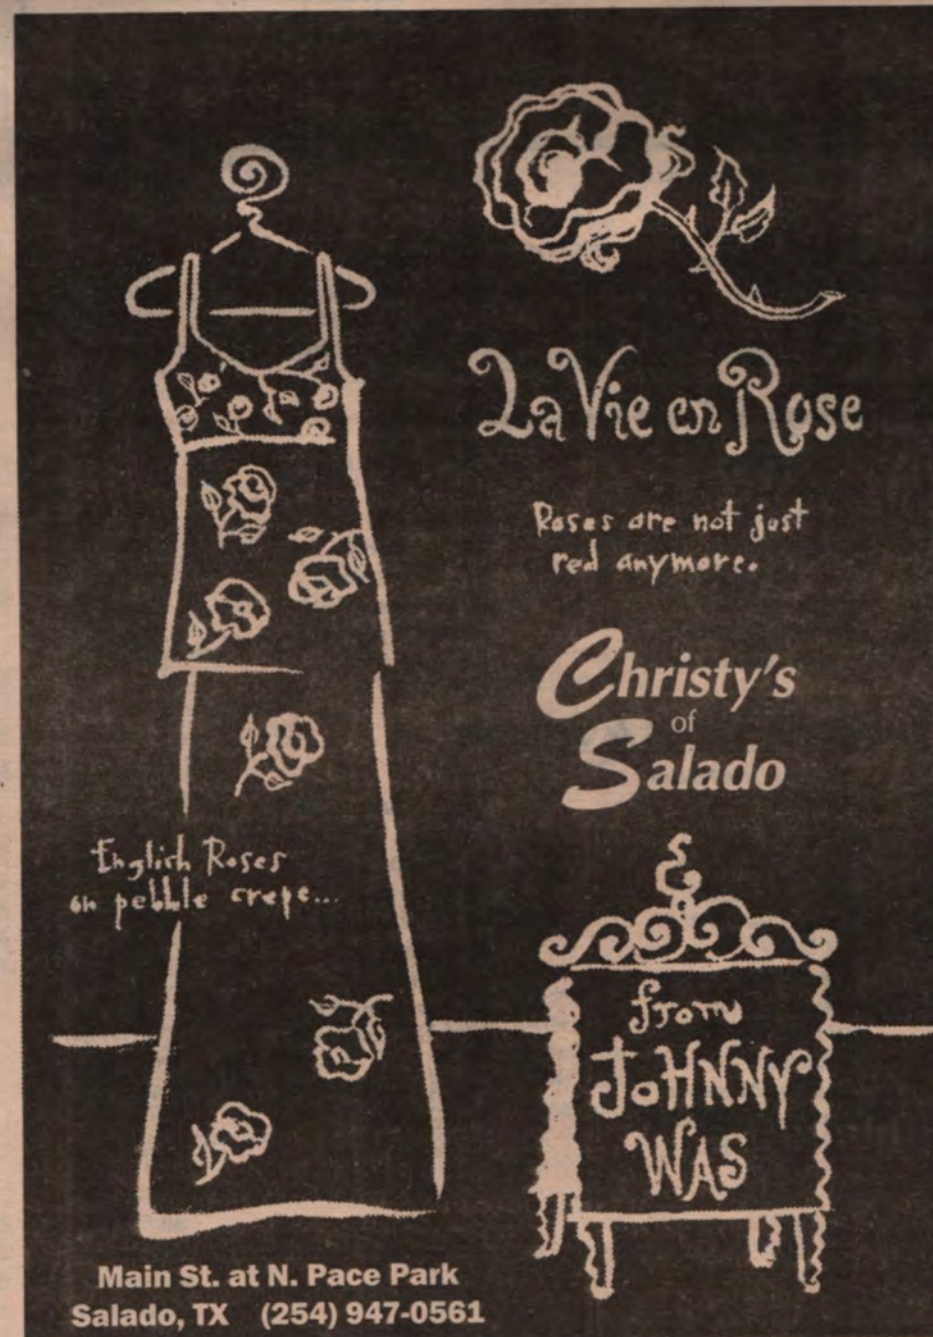 La Vie en Rose
Roses are not just
red anymore.
Christy's
of
Salado
English Roses
on pebble crepe...
from
JoHNNY
WAS
Main St. at N. Pace Park
Salado, TX (254) 947-0561